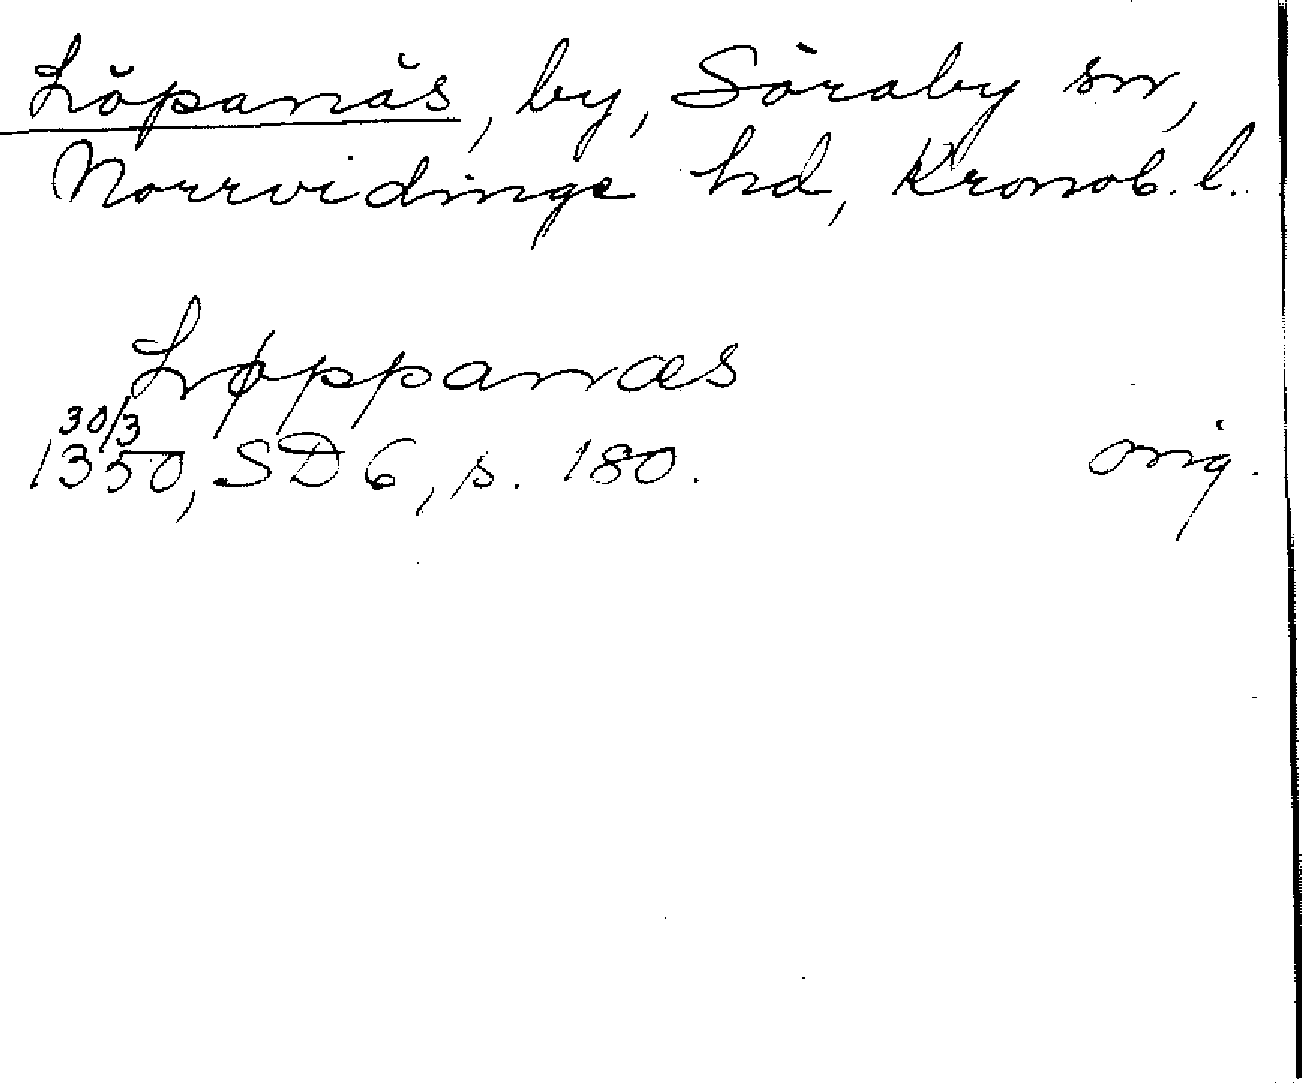 Löpanäs, by, Söraby sn,
Norrvidinge hd, Kronob. l.
Løppanæs
30/3
1350, SD 6, s. 180. orig.